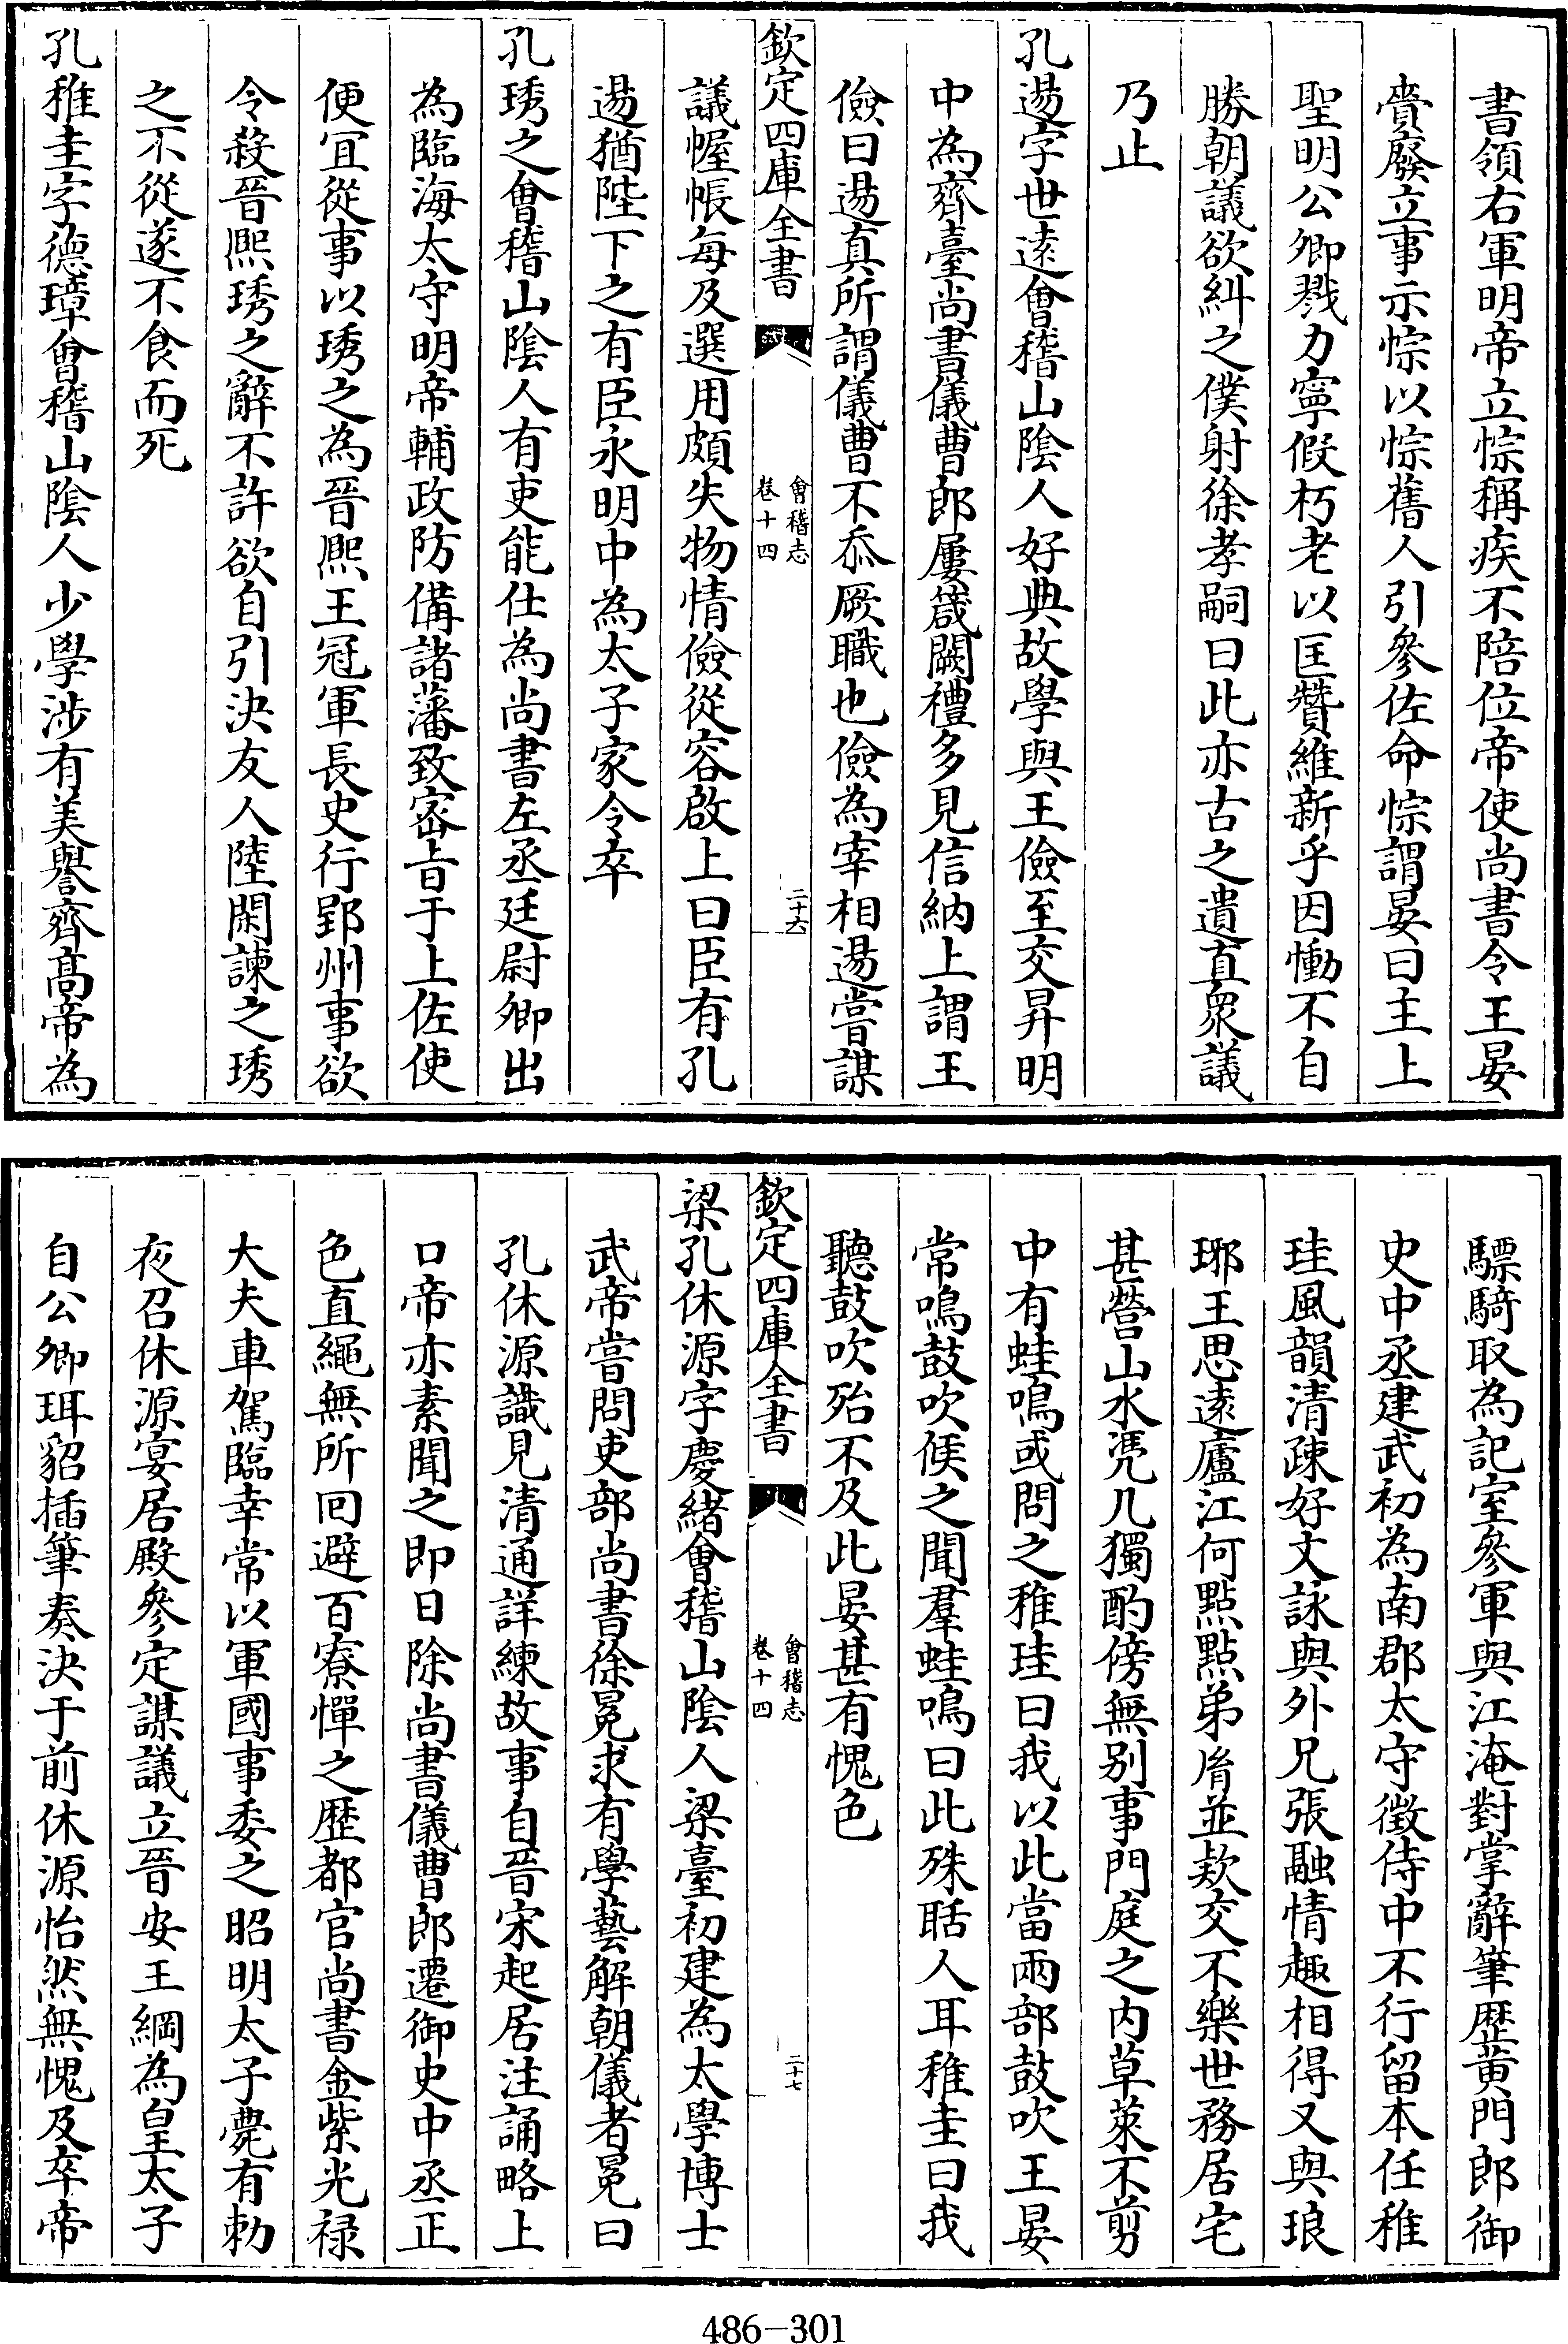 書領右軍明帝立悰稱疾不陪位帝使尚書令王晏
賫廢立事示悰以悰舊人引參佐命悰謂晏曰主上
聖明公卿戮力寧假朽老以匡贊維新乎因慟不自
勝朝議欲糾之僕射徐孝嗣曰此亦古之遺直衆議
乃止
孔逷字世遠會稽山陰人好典故學與王儉至交昇明
中為齊臺尚書儀曹郎屢箴闕禮多見信納上謂王
儉曰逷真所謂儀曹不忝厥職也儉為宰相逷嘗謀
欽定四庫全書
會稽志
卷十四
二十六
議幄帳每及選用頗失物情儉從容啟上曰臣有孔
逷猶陛下之有臣永明中為太子家令卒
孔琇之會稽山陰人有吏能仕為尚書左丞廷尉卿出
為臨海太守明帝輔政防備諸藩致密旨于上佐使
便宜從事以琇之為晉熙王冠軍長史行郢州事欲
令殺晉熙琇之辭不許欲自引決友人陸閑諫之琇
之不從遂不食而死
孔稚圭字德璋會稽山陰人少學涉有美譽齊髙帝為
驃騎取為記室參軍與江淹對掌辭筆歴黄門郎御
史中丞建武初為南郡太守徴侍中不行留本任稚
珪風韻清疎好文詠與外兄張融情趣相得又與琅
琊王思遠廬江何點點弟𦙍並欵交不樂世務居宅
甚營山水凭几獨酌傍無别事門庭之内草萊不剪
中有蛙鳴或問之稚珪曰我以此當兩部鼓吹王晏
常鳴鼓吹候之聞羣蛙鳴曰此殊聒人耳稚圭曰我
聽鼓吹殆不及此晏甚有愧色
欽定四庫全書
會稽志
卷十四
二十七
梁孔休源字慶緒會稽山陰人梁臺初建為太學博士
武帝嘗問吏部尚書徐冕求有學藝解朝儀者冕曰
孔休源識見清通詳練故事自晉宋起居注誦略上
口帝亦素聞之即日除尚書儀曹郎遷御史中丞正
色直繩無所回避百寮憚之歴都官尚書金紫光禄
大夫車駕臨幸常以軍國事委之昭明太子薨有勅
夜召休源宴居殿參定謀議立晉安王綱為皇太子
自公卿珥貂插筆奏決于前休源怡然無愧及卒帝
486-301